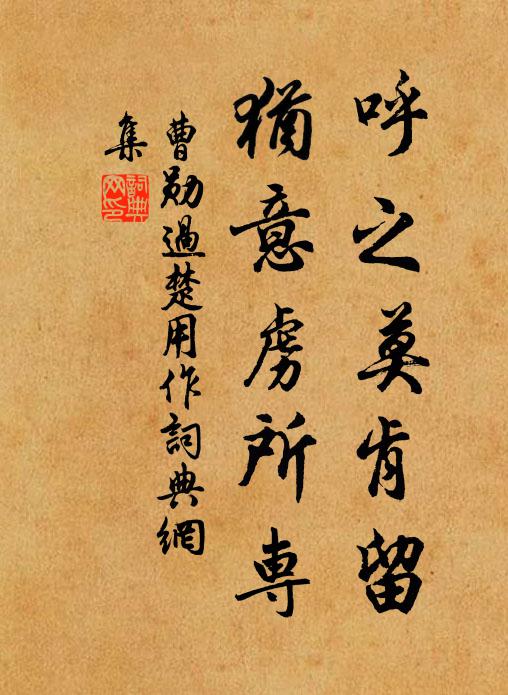 呼之莫肯留
猶意虜所専
曹勛過楚用作詞典網
集
詞典
网印